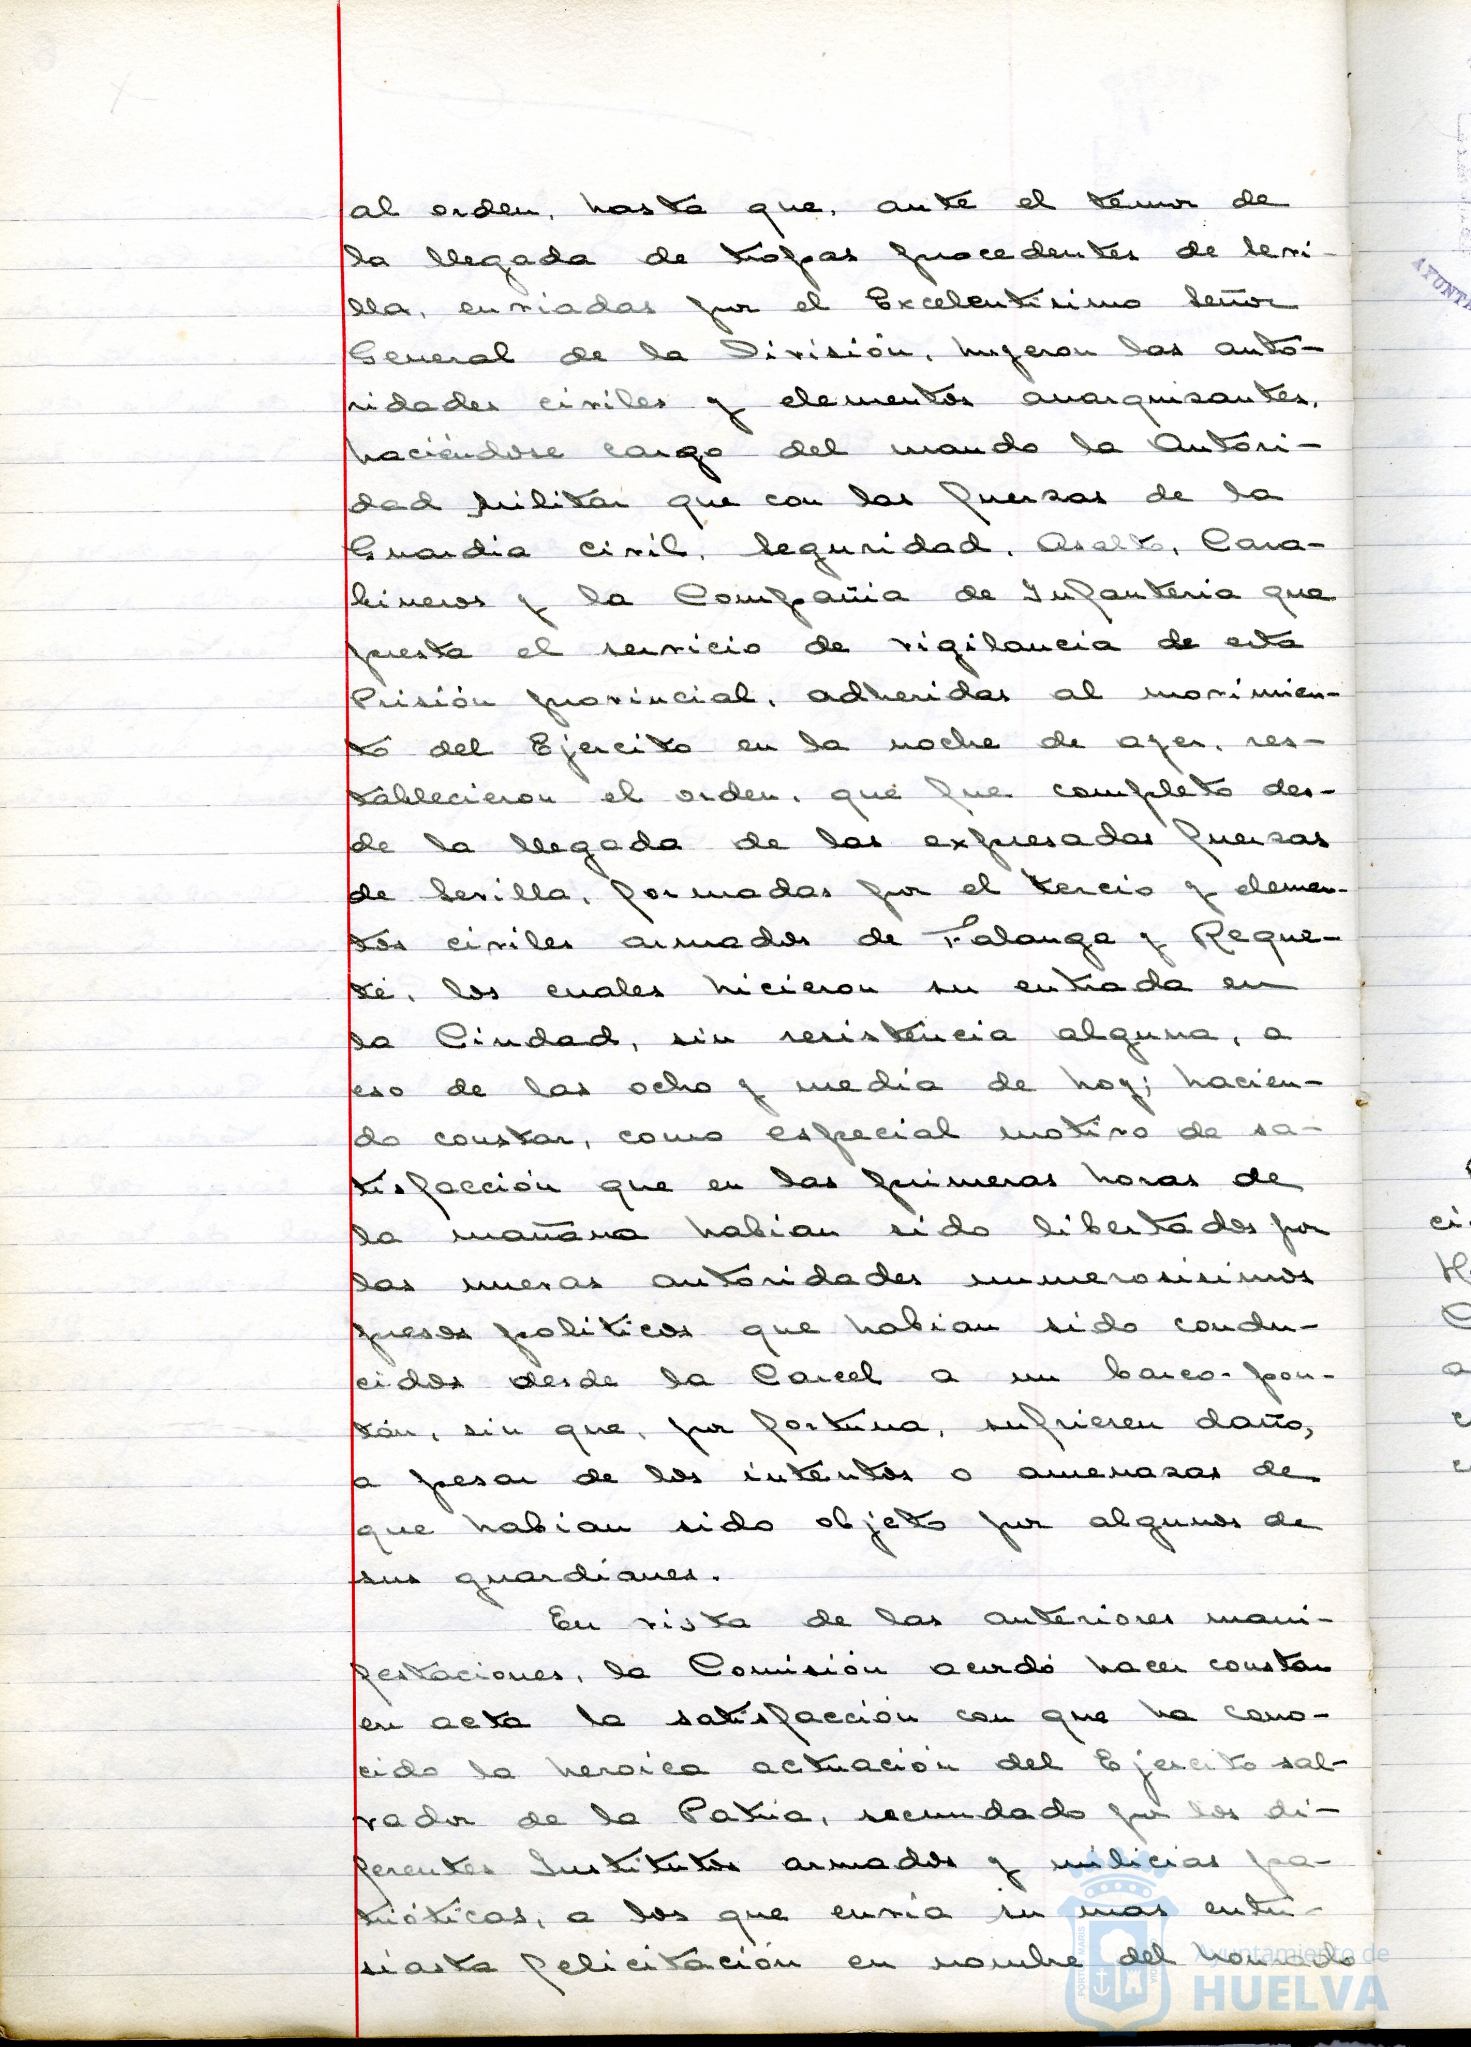 al orden, hasta que, ante el temor de
la llegada de tropas procedentes de Sevi-
lla, enviadas por el Excelentísimo Señor
General de la División, huyeron las auto-
ridades civiles y elementos anarquizantes,
haciéndose cargo del mando la Autori-
dad Militar que con las fuerzas de la
Guardia civil, Seguridad, Asalto, Cara-
bineros y la Compañia de Infanteria que
presta el servicio de vigilancia de esta
Prisión provincial, adheridas al movimien-
to del Ejercito en la noche de ayer, res-
tablecieron el orden, que fue completo des-
de la llegada de las expresadas fuerzas
de Sevilla, formadas por el tercio y elemen-
tos civiles armados de Falange y Reque-
té, los cuales hicieron su entrada en
la Ciudad, sin resistencia alguna, a
eso de las ocho y media de hoy; hacien-
do constar, como especial motivo de sa-
tisfacción que en las primeras horas de
la mañana habian sido libertados por
las nuevas autoridades numerosisimos
presos politicos que habian sido condu-
cidos desde la Carcel a un barco-pon-
tón, sin que, por fortuna, sufrieren daño,
a pesar de los intentos o amenazas de
que habian sido objeto por algunos de
sus guardianes.
En vista de las anteriores mani-
festaciones, la Comisión acordó hacer constar
en acta la satisfacción con que ha cono-
cido la heroica actuación del Ejercito sal-
vador de la Patria, secundado por los di-
ferentes Institutos armados y milicias pa-
trióticas, a los que envia su mas entu-
siasta felicitación en nombre del honrado
Ayuntamiento de
HUELVA